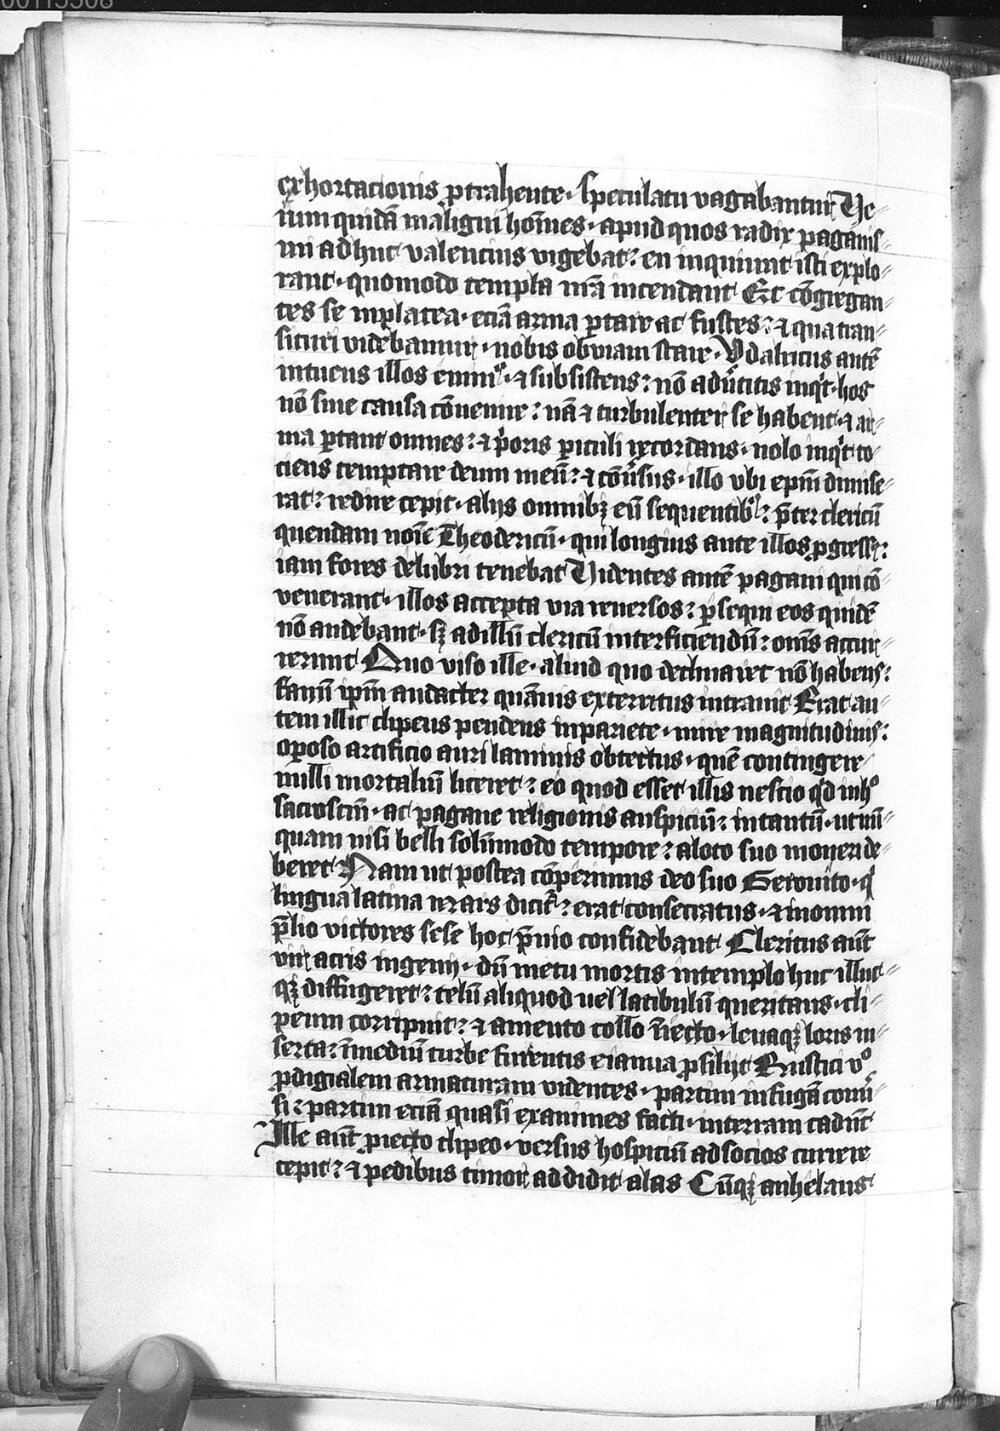 00115508
exhortacionis ꝓtrahente · speculatu vagabantur Ve⸗
rum quidā maligni hoīnes · apud quos radix paganis⸗
mi adhuc valencius vigebat : en inquiunt isti explo⸗
rant · quomodo templa nr̄a incendant Et cōgregan⸗
tes se in platea · eciā arma ꝑtare ac fustes : ⁊ qua tran⸗
situri videbamur · nobis obviam stare · Vdalricus autē
intuens illos emin⁹ · ⁊ subsistens : nō aduertitis inqͥt · hos
nō sine causa cōuenire : nā ⁊ turbulenter se habent · ⁊ ar⸗
ma ꝑtant omnes : ⁊ pͥoris ꝑiculi recordans · nolo inqͥt to⸗
ciens temptare deum meū : ⁊ cōuͥsus · illo vbi epm̄ dimise⸗
rat : redire cepit · alijs omnibꝫ eū sequentibꝰ : p̄ter clericū
quendam noīe Theodericū · qui longius ante illos ꝓgressꝰ :
iam fores delubri tenebat Videntes autē pagani qui cō⸗
venerant · illos accepta via reuersos : ꝑsequi eos quidē
nō audebant · sꝫ ad illū clericū interficiendū : om̄s accur⸗
rerunt Quo viso ille · aliud quo declinaret nō habens :
fanū ipm̄ audacter quāuis exterritus intrauit Erat au⸗
tem illic clipeus pendens in pariete · mire magnitudinis :
oꝑoso artificio auri laminis obtectus · quē contingere
nulli mortaliū liceret : eo quod esset illis nescio qͥd in hͦ
sacrosctm̄ · ac pagane religionis auspiciū : in tantū · ut nū⸗
quam nisi belli solūmodo tempore : a loco suo moueri de⸗
beret Nam ut postea cōperimus deo suo Gerouito · qͥ
lingua latina mars dicitr̄ : erat consecratus · ⁊ in omni
p̄lio victores sese hoc p̄uio confidebant Clericus aūt
vir acris ingenij · dū metu mortis in templo huc illuc⸗
qꝫ diffugeret : telū aliquod uel latibulū queritans · cli⸗
peum corripuit : ⁊ amento collo īniecto · leuaqꝫ loris in⸗
serta : ī mediū turbe furentis e ianua ꝓsilijt Rustici vͦ
ꝓdigialem armaturam videntes · partim in fugā conuͥ⸗
si : partim eciā quasi exanimes facti · in terram cadūt
Ille aūt ꝓiecto clipeo · versus hospiciū ad socios currere
cepit : ⁊ pedibus timor addidit alas Cūqꝫ anhelans